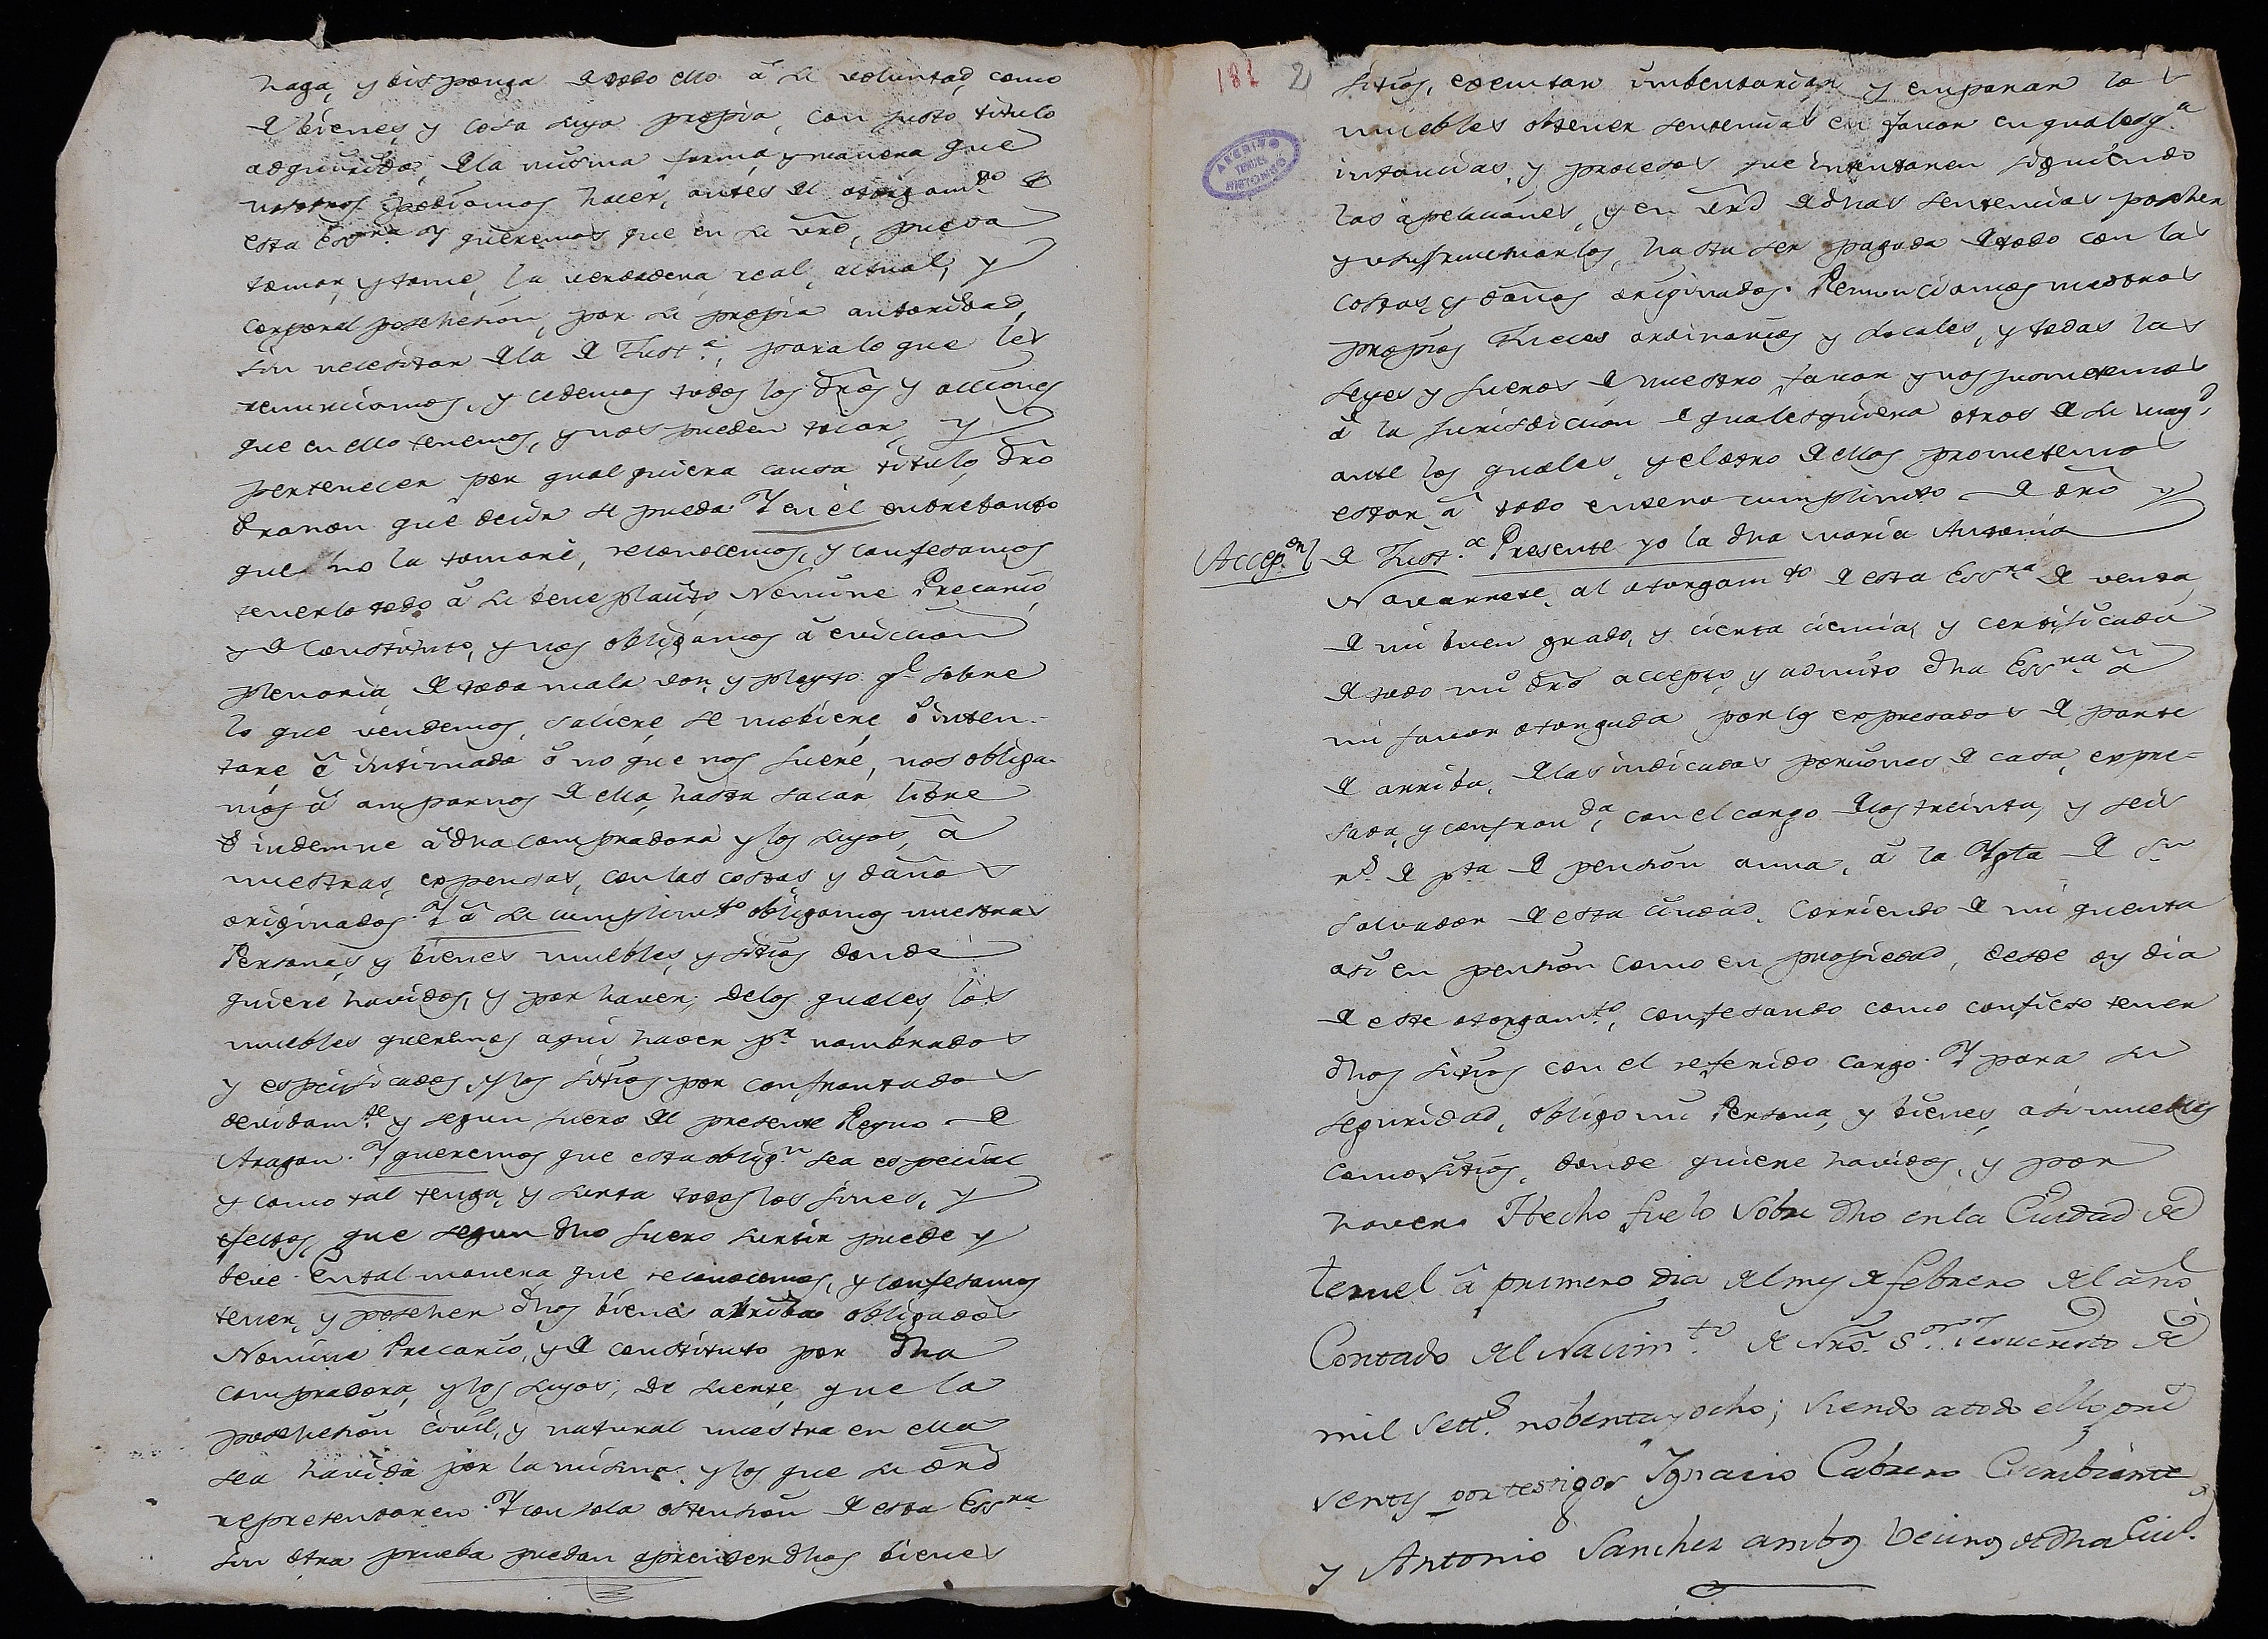 haga, y disponga de todo ello â su voluntad, como
de bienes, y cosa suya propia, con justo titulo
adquirida, de la misma forma, y manera que
nosotros podiamos hacer, antes del otorgam.to de
esta Ess.ra Y queremos que en su vrd, pueda
tomar, y tome, la verdadera, real, actual, y
corporal posehesion, por su propia autoridad,
sin necesitar de la de Just.a, para lo que les
renunciamos, y cedemos todos los dr̃os y acciones
que en ello tenemos, y nos pueden tocar, y
pertenecer por qualquiera causa, titulo, dr̃o
ò razon que decir se pueda Y en el entretanto
que no la tomare, reconocemos, y confesamos
tenerlo todo â su beneplacito, Nomine Precario,
y de Constituto, y nos obligamos â eviccion
plenaria, de toda mala voz, y pleyto q.e sobre
lo que vendemos, saliere, se moviere, ò inten-
tare è intimada ò no que nos fuere, nos obliga-
mos â ampararnos de ella, hasta sacar libre
è indemne â dha compradora y los suyos, â
nuestras expensas, con las costas, y daños
originados. Y â su cumplim.to obligamos nuestras
Personas, y bienes muebles, y sitios donde
quiere havidos, y por haver; de los quales, los
muebles queremos aqui haver p.r nombrados
y especificados, y los sitios por confrontados
devidam.te y segun fuero del presente Reyno de
Aragon. Y queremos que esta oblig.n sea especial
y como tal tenga, y surta todos los fines, y
efectos, que segun dho fuero surtir puede y
deve. En tal manera que reconocemos, y confesamos
tener, y poseher dhos bienes arriba obligados
Nomine Precario, y de constituto por dha
compradora, y los suyos; de suerte, que la
posehesion civil, y natural nuestra en ella
sea havida por la misma, y los que su dr̃o
representaren. Y con sola ostension de esta Ess.ra
sin otra prueba puedan aprender dhos bienes
182 2
sitios, executar imbentariar y emparar los
muebles obtener sentencias en favor en qualesq.a
instancias, y procesos que intentaren siguiendo
las apelaciones, y en vrd de dhas sentencias posher
y usufructuarlos, hasta ser pagada de todo con las
costas, y daños originados. Renunciamos nuestros
propios Jueces ordinarios y Locales, y todas las
Leyes y fueros de nuestro favor y nos sometemos
â la Jurisdicion de qualesquiera otros de su mag.d
ante los quales, y el otro de ellos prometemos
estar â todo entero cumplimto de dr̃o y
Accep.on de Just.a Presente yo la dha Maria Antonia
Navarrete, al otorgam.to de esta Ess.ra de venta,
de mi buen grado, y cierta ciencia, y certificada
de todo mi dr̃o accepto, y admito dha Ess.ra â
mi favor otorgada por los expresados de parte
de arriba, de las indicadas porciones de casa, expre-
sada, y confron.da, con el cargo de los treinta, y seis
r.s de p.ta de pension annua, â la Ygla de S.n
Salvador de esta ciudad. Corriendo de mi quenta
asi en pension como en propiedad, desde oy dia
de este otorgam.to, confesando como confieso tener
dhos sitios con el referido cargo. Y para su
seguridad, obligo mi Persona, y bienes, asi muebles
como sitios, donde quiere havidos, y por
haver. Hecho fue lo sobre dho en la Ciudad de
teruel â primero dia del mes de febrero del año
Contado del Nacim.to de Nr̃o S.or Jesucristo de
mil Sett.s nobenta y ocho; siendo a todo ello pres
sentes por testigos Ygnacio Cabrero Escribiente,
y Antonio Sanchez ambos Vecinos de dha Ciud.
ARCHIVO
TERUEL
HISTORICO